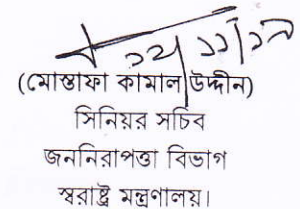 (মোস্তাফা কামাল উদ্দীন)
সিনিয়র সচিব
জননিরাপত্তা বিভাগ
স্বরাষ্ট্র মন্ত্রণালয়।